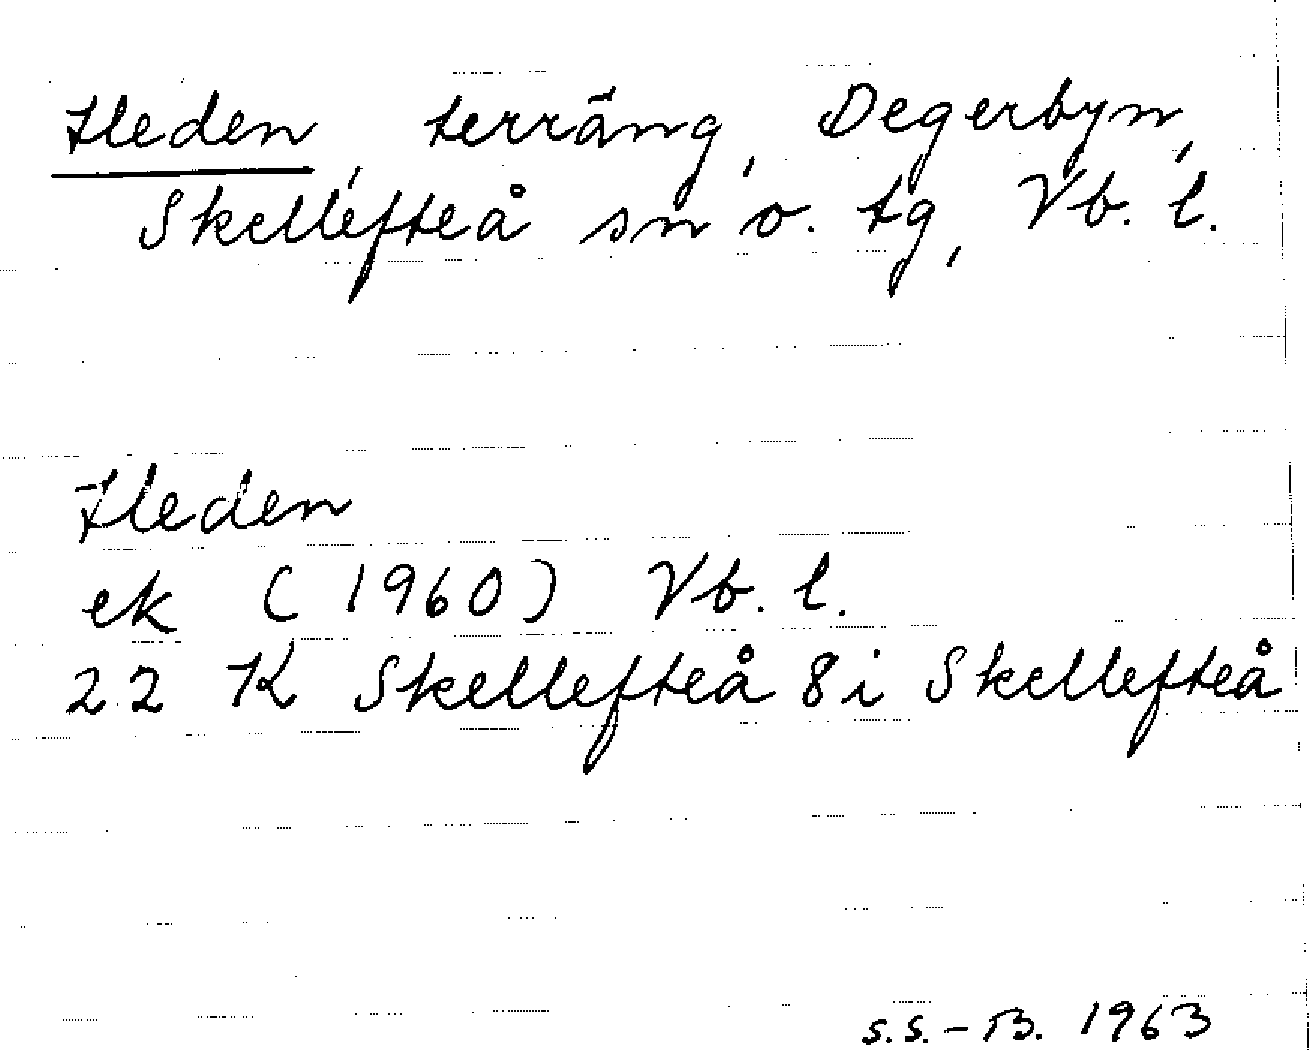 Heden, terräng, Degerbyn,
Skellefteå sn o. tg, Vb. l.
Heden
ek (1960) Vb. l.
22 K Skellefteå 8 i Skellefteå
S.S.-B. 1963